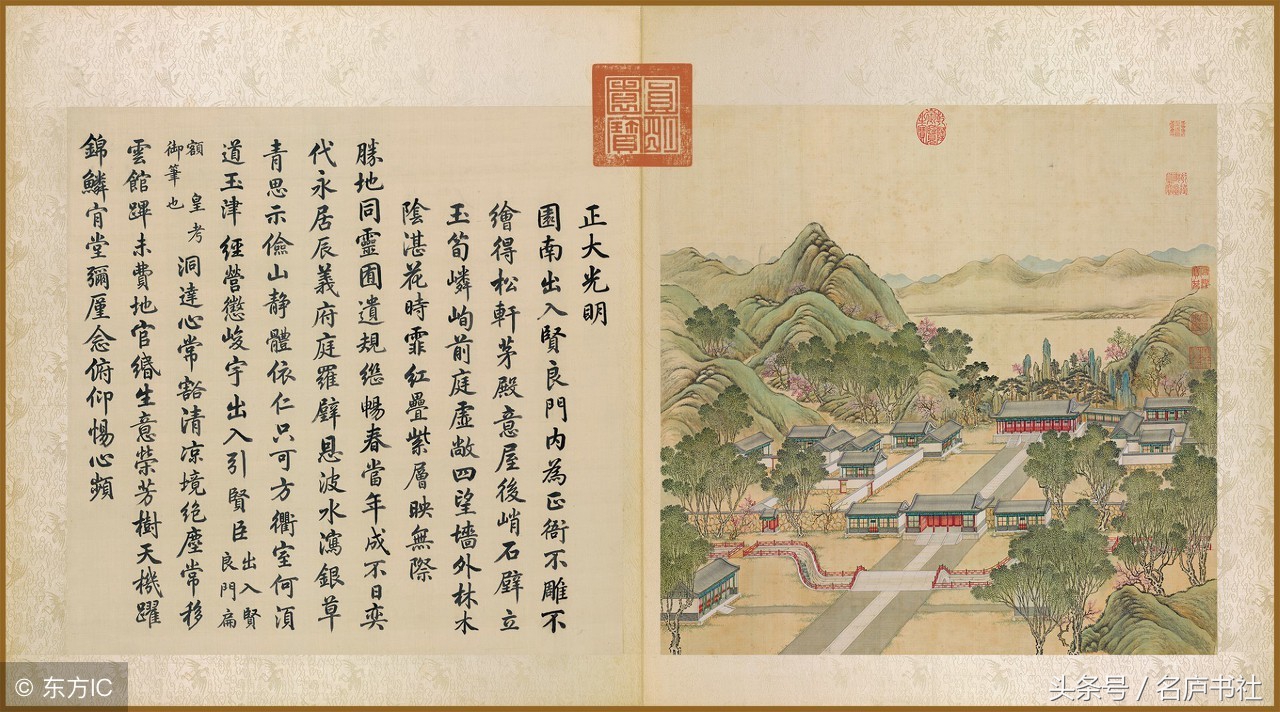 正大光明
園南出入賢良門內為正衙不雕不
繪得松軒茅殿意屋後峭石壁立
玉筍嶙峋前庭虛敞四望墻外林木
陰湛花時霏紅疊紫層映無際
勝地同靈囿遺規繼暢春當年成不日奕
代永居辰義府庭羅璧恩波水瀉銀草
青思示儉山静體依仁只可方衢室何湏
道玉津經營懲峻宇出入引賢臣出入賢
良門扁
額皇考
御筆也洞達心常豁清涼境絶塵常移
雲館蹕未費地官緡生意榮芳樹天機躍
錦鱗肯堂彌廑念俯仰惕心頻
圓明園寶
© 东方IC
头条号 / 名庐书社